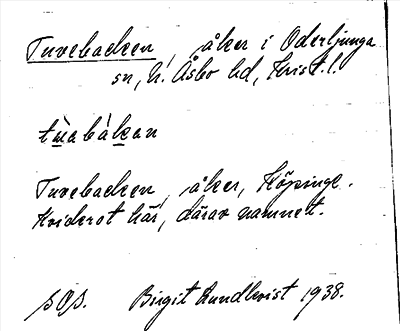 Tuvebacken, åker i Oderljunga
sn, N. Åsbo hd, Krist. l.
tùabàkan
Tuvebacken, åker, Köpinge.
Kviderot här, därav namnet.
SOS. Birgit Lundkvist 1938.